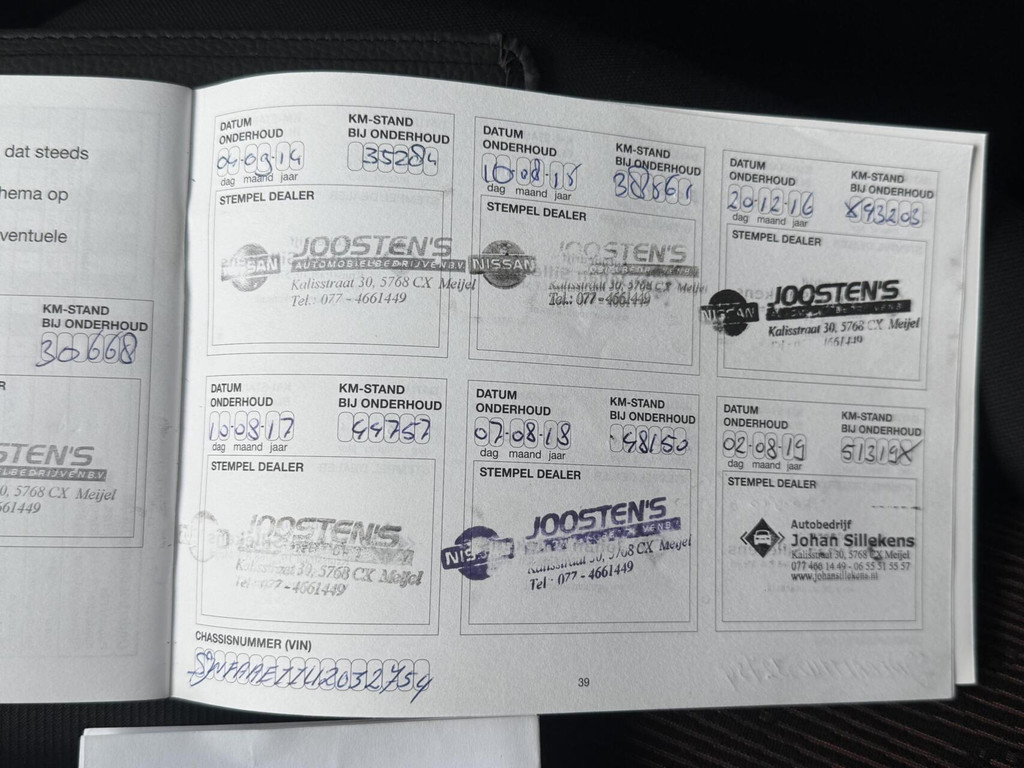 dat steeds
hema op
ventuele
KM-STAND
BIJ ONDERHOUD
30668
STEN'S
LBEDRIJVEN B.V
0, 5768 CX Meijel
661449
DATUM
ONDERHOUD
04-03-14
dag maand jaar
KM-STAND
BIJ ONDERHOUD
35284
STEMPEL DEALER
NISSAN
JOOSTEN'S
AUTOMOBIELBEDRIJVEN B.V
Kalisstraat 30, 5768 CX Meijel
Tel.: 077 - 4661449
DATUM
ONDERHOUD
10-08-15
dag maand jaar
KM-STAND
BIJ ONDERHOUD
38661
STEMPEL DEALER
NISSAN
JOOSTEN'S
Kalisstraat 30, 5768 CX Meijel
Tel.: 077 - 4661449
DATUM
ONDERHOUD
20-12-16
dag maand jaar
KM-STAND
BIJ ONDERHOUD
43203
STEMPEL DEALER
NISSAN
JOOSTEN'S
Kalisstraat 30, 5768 CX Meijel
4661449
DATUM
ONDERHOUD
10-08-17
dag maand jaar
KM-STAND
BIJ ONDERHOUD
44757
STEMPEL DEALER
JOOSTEN'S
Kalisstraat 30, 5768 CX Meijel
Tel.: 077 - 4661449
DATUM
ONDERHOUD
07-08-18
dag maand jaar
KM-STAND
BIJ ONDERHOUD
48150
STEMPEL DEALER
NISSAN
JOOSTEN'S
30, 5768 CX Meijel
Tel.: 077 - 4661449
DATUM
ONDERHOUD
02-08-19
dag maand jaar
KM-STAND
BIJ ONDERHOUD
51319
STEMPEL DEALER
Autobedrijf
Johan Sillekens
Kalisstraat 30, 5768 CX Meijel
077 466 14 49 - 06 55 51 55 57
www.johansillekens.nl
CHASSISNUMMER (VIN)
39